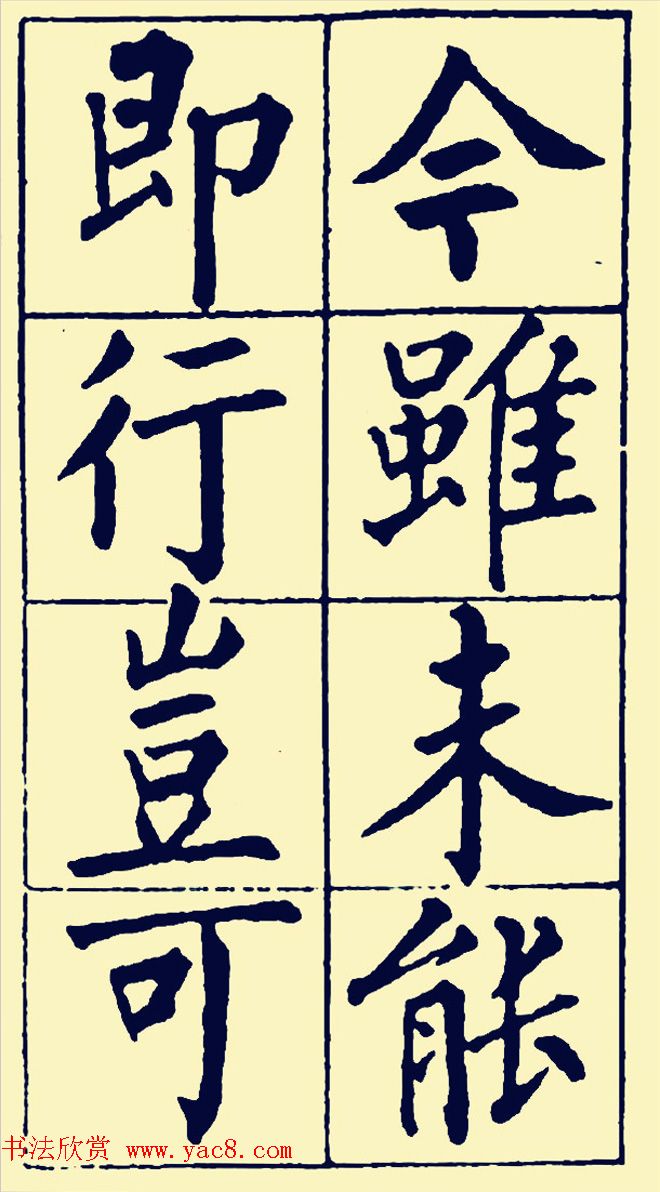 今雖未能
即行豈可
书法欣赏 www.yac8.com